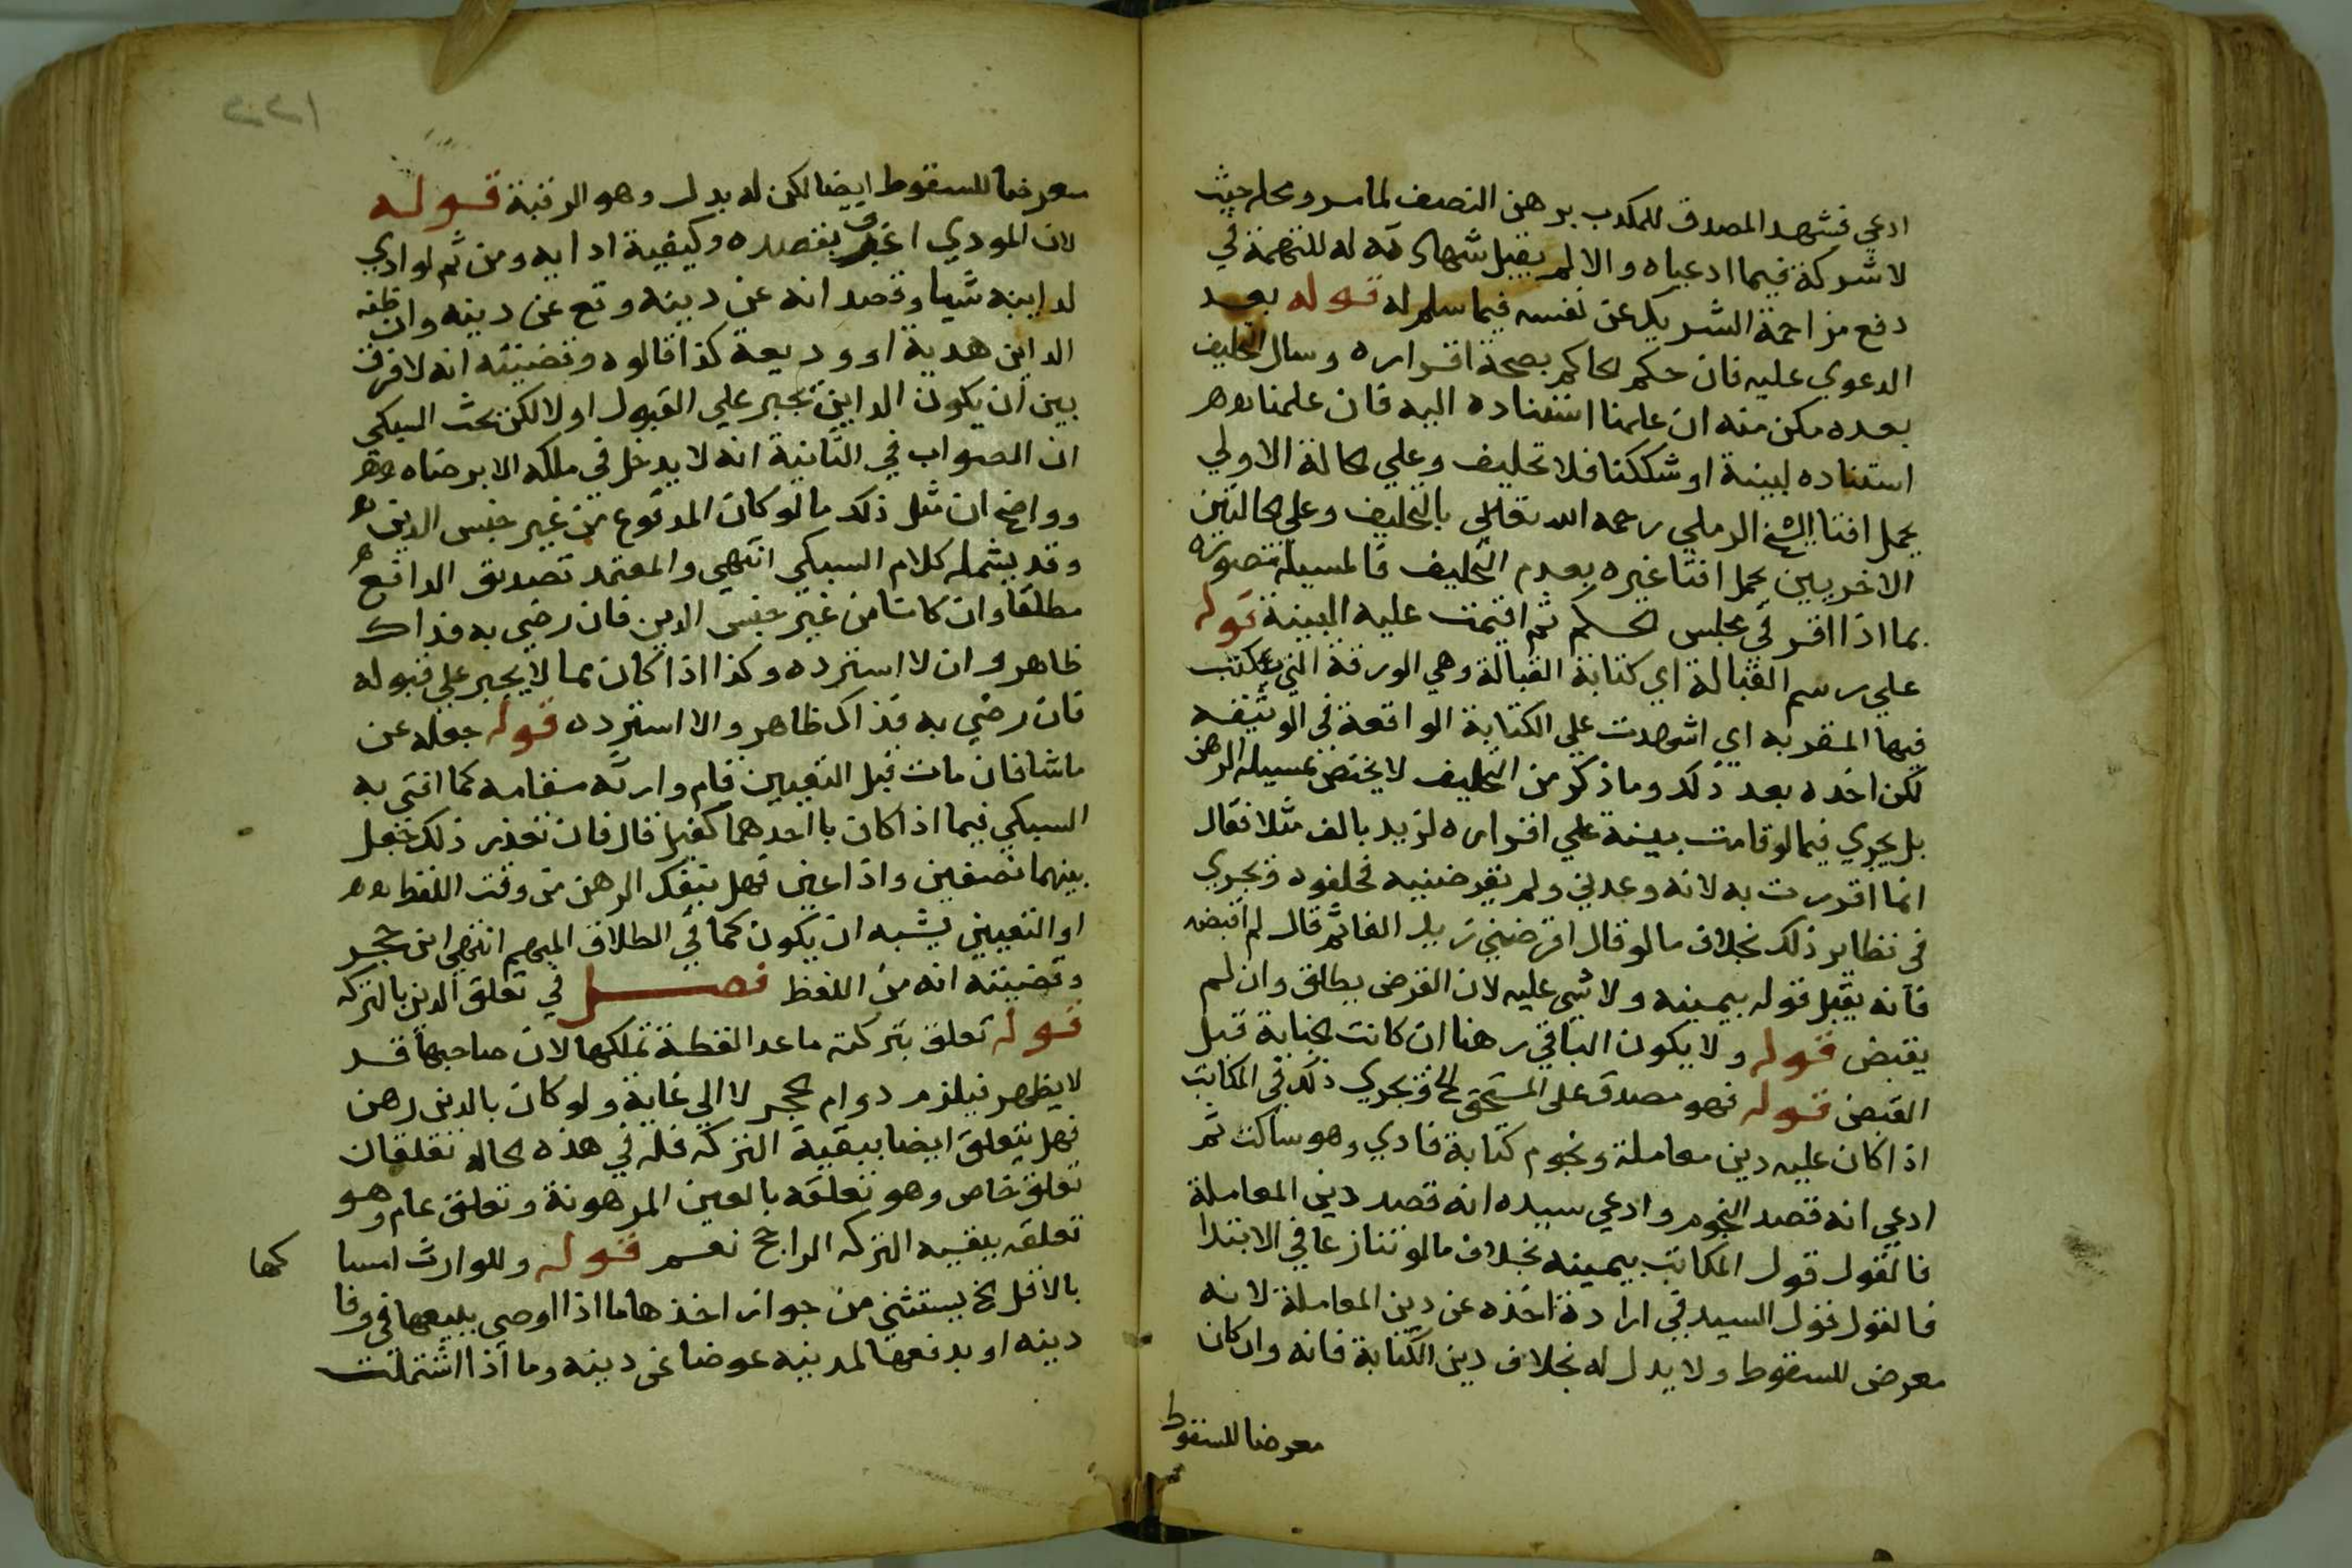 ادعي فشهد المصدق للمكدب برهن النصف لما مر ومحله حيث
لا شركة فيما ادعياه والا لم يقبل شهادته له للتهمة في
دفع مزاحمة الشريك عن نفسه فيما سلم له قوله بعد
الدعوي عليه فان حكم الحاكم بصحة اقراره وسال التحليف
بعده مكن منه ان علمنا استناده اليه فان علمنا
استناده لبينة او شككنا فلا تحليف وعلي الحالة الاولي
يحمل افتا الشيخ الرملي رحمه الله تعالي بالتحليف وعلي الحالتين
الاخريين يحمل افتا غيره بعدم التحليف فالمسيلة تصويره
بما اذا اقر في مجلس الحكم ثم اقيمت عليه البينة قوله
علي رسم القبالة اي كتابة القبالة وهي الورقة التي يكتب
فيها المقر به اي اشهدت علي الكتابة الواقعة في الوثيقه
لكن اخده بعد ذلك وما ذكر من التحليف لا يختص بمسيلة الرهن
بل يجري فيما لو قامت بينة علي اقراره لزيد بالف مثلا فقال
انما اقررت به لانه وعدني ولم يقرضنيه فحلفوه ويجري
في نظاير ذلك بخلاف ما لو قال اقرضني زيد الفا ثم قال لم اقبضه
فانه يقبل قوله بيمينه ولا شي عليه لان القرض يطلق وان لم
يقبض قوله ولا يكون الباقي رهنا ان كانت الجناية قبل
القبض قوله فهو مصدق علي المستحق الخ ويجري ذلك في المكاتب
اذا كان عليه دين معاملة ونجوم كتابة فادي وهو ساكت ثم
ادعي انه قصد النجوم وادعي سيده انه قصد دين المعاملة
فالقول قول المكاتب بيمينه بخلاف ما لو تنازعا في الابتدا
فالقول قول السيد في ارادة اخذه عن دين المعاملة لانه
معرض للسقوط ولا بدل له بخلاف دين الكتابة فانه وان كان
معرضا للسقوط
معرضا للسقوط ايضا لكن له بدل وهو الرقبة قوله
لان المودي اعرف بقصده وكيفية ادايه ومن ثم لو ادي
لداينه شيا وقصد انه عن دينه وقع عن دينه وان ظنه
الداين هدية او وديعة كذا قالوه وقضيته انه لا فرق
بين ان يكون الداين يجبر علي القبول او لا لكن بحث السبكي
ان الصواب في الثانية انه لا يدخل في ملكه الا برضاه
وواضح ان مثل ذلك ما لو كان المدفوع من غير جنس الدين
وقد يشمله كلام السبكي انتهي والمعتمد تصديق الدافع
مطلقا وان كانت من غير جنس الدين فان رضي به فذاك
ظاهر وان لا استرده وكذا اذا كان مما لا يجبر علي قبوله
فان رضي به فذاك ظاهر والا استرده قوله جعله عن
ما شا فان مات قبل التعيين قام وارثه مقامه كما افتي به
السبكي فيما اذا كان باحدهما كفيل قال فان تعذر ذلك جعل
بينهما نصفين واذا عين فهل ينفك الرهن من وقت اللفظ
او التعيين يشبه ان يكون كما في الطلاق المبهم انتهي ابن حجر
وقضيته انه من اللفظ فصل في تعلق الدين بالتركه
قوله تعلق بتركته ما عدا لقطة تملكها لان صاحبها قد
لا يظهر فيلزم دوام الحجر لا الي غاية ولو كان بالدين رهن
فهل يتعلق ايضا ببقية التركه فله في هذه الحاله تعلقان
تعلق خاص وهو تعلقه بالعين المرهونة وتعلق عام وهو
تعلقه ببقيه التركه الراجح نعم قوله وللوارث امسا كها
بالاقل الخ يستثني من جواز اخذها ما اذا اوصي ببيعها في وفا
دينه او بدفعها لمدينه عوضا عن دينه وما اذا اشتملت